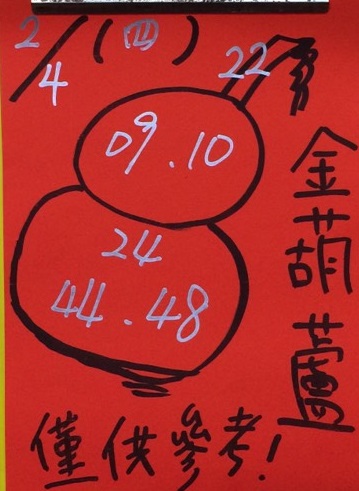 2/4 (四)
22
09.10
24
44.48
金葫蘆
僅供參考!